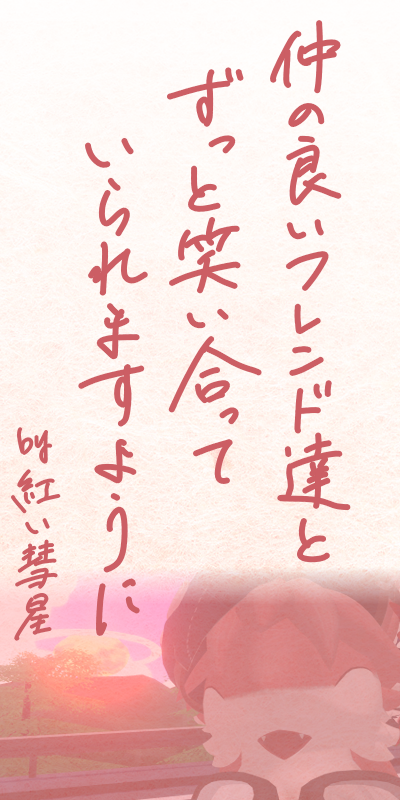 仲の良いフレンド達と
ずっと笑い合って
いられますように
by 紅い彗星